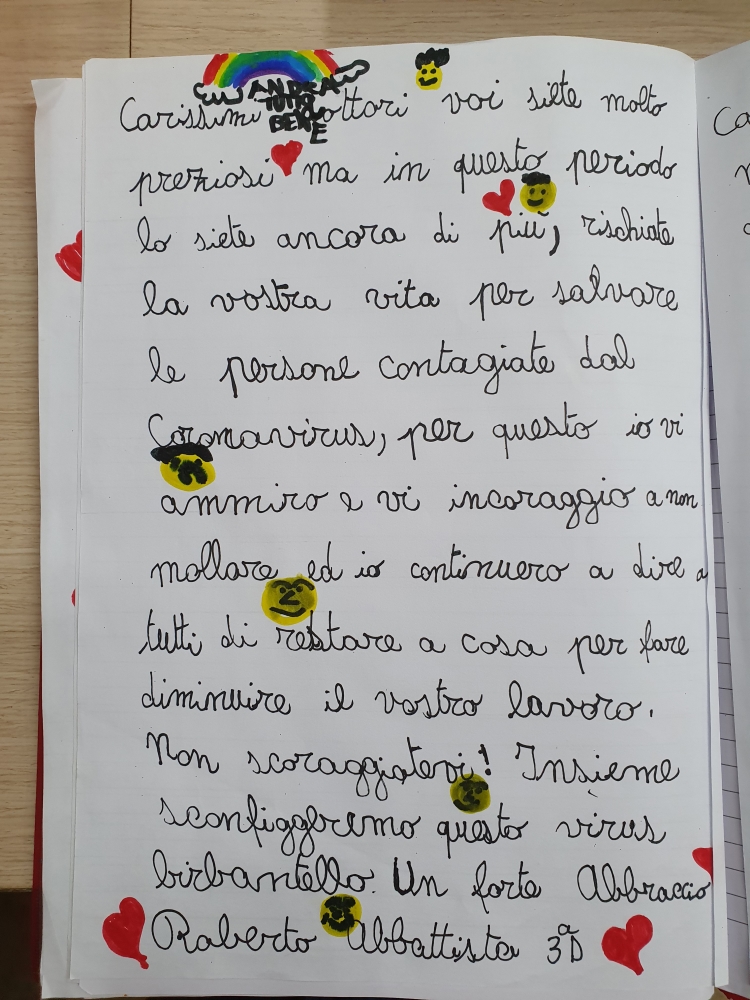 ANDRÀ
TUTTO
BENE
Carissimi dottori voi siete molto
preziosi ma in questo periodo
lo siete ancora di più, rischiate
la vostra vita per salvare
le persone contagiate dal
Coronavirus, per questo io vi
ammiro e vi incoraggio a non
mollare ed io continuerò a dire a
tutti di restare a casa per fare
diminuire il vostro lavoro.
Non scoraggiatevi! Insieme
sconfiggeremo questo virus
birbantello. Un forte Abbraccio
Roberto Abbattista 3ªD
Ca